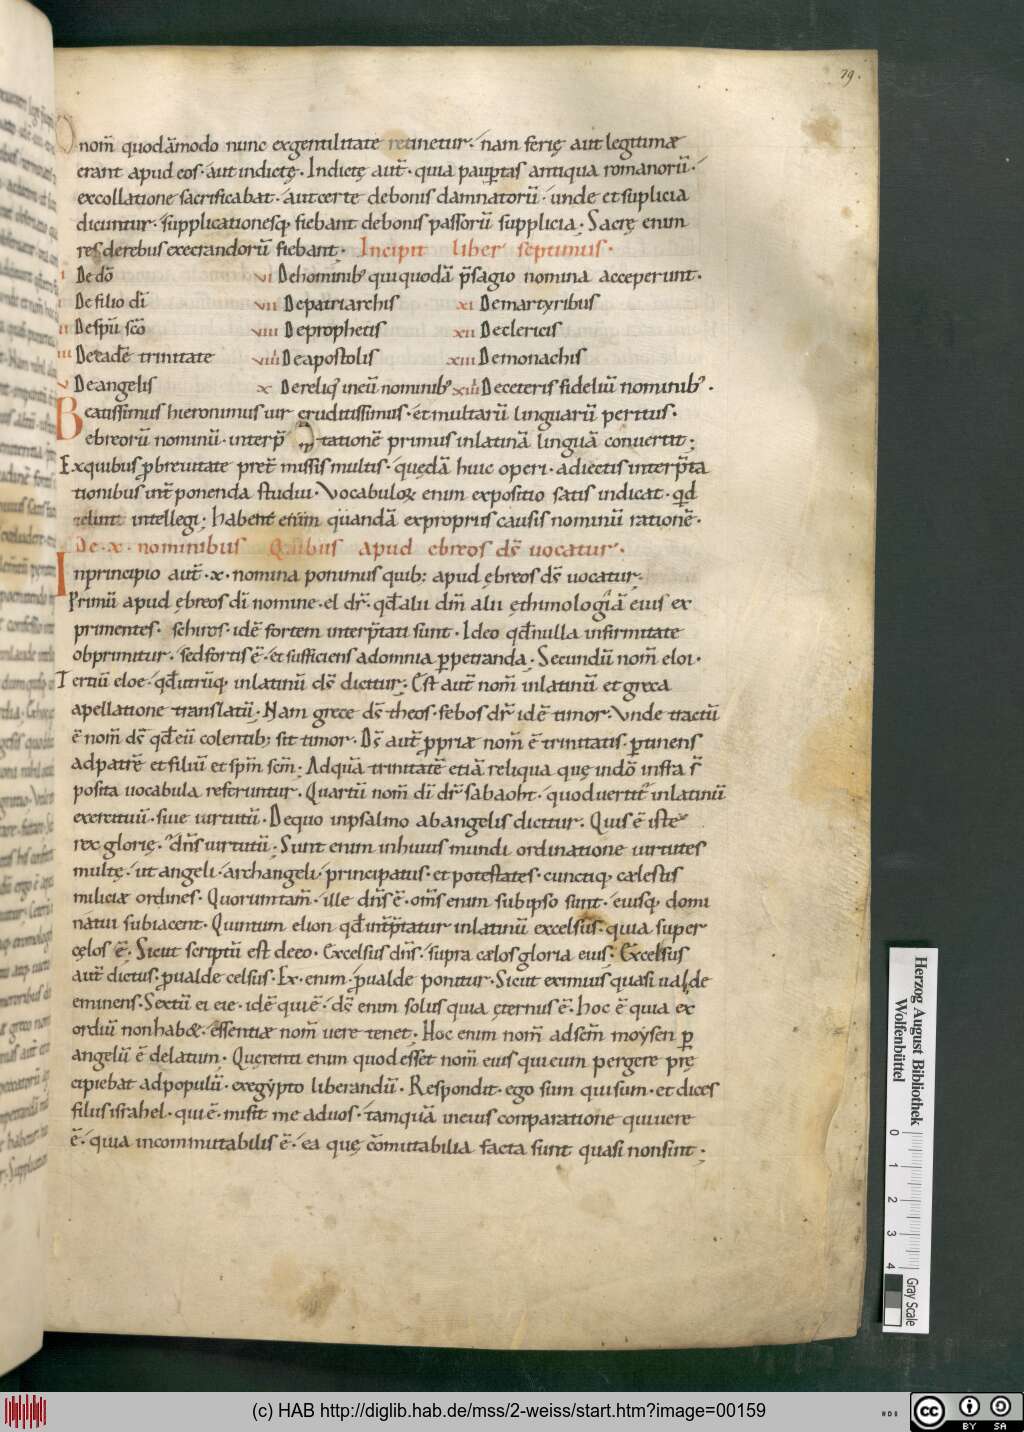 79.
nom̄ quodāmodo nunc exgentilitate retinetur. nam ferię aut legitimæ
erant apud eos. aut indictę. Indictę aut̄. quia paup̱tas antiqua romanorū.
excollatione sacrificabat. aut certe debonis damnatorū. unde et suplicia
dicuntur. supplicationesq; fiebant debonis passorū supplicia. Sacrę enim
res derebus execrandorū fiebant. Incipit liber septimus.
i De dō vi Dehominib; qui quodā p̄sagio nomina acceperunt.
i De filio dī vii Depatriarchis xi Demartyribus
ii De spū scō viii Deprophetis xii Declericis
iii De eadē trinitate viiii Deapostolis xiii Demonachis
v De angelis x Dereliq; ineū nominib; xiiii Deceteris fideliū nominib;.
Beatissimus hieronimus uir eruditissimus. et multarū linguarū peritus.
ebreorū nominū. interp̄tationē primus inlatinā linguā conuertit;
Exquibus p̱breuitate pret̄missis multis. quędā huic operi. adiectis interp̄ta
tionibus int̄ponenda studui. Vocabuloꝝ enim expositio satis indicat. qd̄
uelint intellegi; habent enim quandā exproprius causis nominū rationē.
De .x. nominibus Quibus apud ebreos dē uocatur.
Inprincipio aut̄. x. nomina ponimus quib; apud ębreos dē uocatur.
Primū apud ębreos dī nomine. el dr̄. qd̄ alii dm̄ alii ęthimologiā eius ex
primentes. schiros. idē fortem interp̄tati sunt. Ideo qd̄ nulla infirmitate
obprimitur. sed fortis ē. et sufficiens adomnia p̱petranda. Secundū nom̄ eloi.
Tertiū eloe. qd̄ utrūq; inlatinū dē dicitur. Est aut̄ nom̄ inlatinū et greca
apellatione translatū. Nam grece dē theos. febos dr̄ idē timor. Vnde tractū
ē nom̄ dē qd̄ eū colentib; sit timor. Dē aut̄ p̱priæ nom̄ ē trinitatis. p̱tinens
adpatrē et filiū et spm̄ scm̄. Adquā trinitatē etiā reliqua quę indō infra s̄
posita uocabula referuntur. Quartū nom̄ dī dr̄ sabaoht. quod uertit̄ inlatinū
exercituū. siue uirtutū. Dequo inpsalmo abangelis dicitur. Quis ē iste
rex glorię. dn̄s uirtutū. Sunt enim inhuius mundi ordinatione uirtutes
multę. ut angeli. archangeli. principatus. et potestates. cunctiq; cælestis
miliciæ ordines. Quorum tam̄. ille dn̄s ē. om̄s enim subipso sunt. eiusq; domi
natui subiacent. Quintum elion qd̄ int̄p̄tatur inlatinū excelsus. quia super
cęlos ē. Sicut scriptū est deeo. Excelsus dn̄s. supra cælos gloria eius. Excelsus
aut̄ dictus. p̱ualde celsus. Ex. enim. p̱ualde ponitur. Sicut eximius quasi ualde
eminens. Sextū ei eie. idē qui ē. dē enim solus quia ęternus ē. hoc ē quia ex
ordiū non hab&. essentiæ nom̄ uere tenet. Hoc enim nom̄ adsem̄ moysen p̱
angelū ē delatum. Quęrenti enim quod esset nom̄ eius qui eum pergere prę
cipiebat adpopulū. exegypto liberandū. Respondit. ego sum qui sum. et dices
filiis israhel. qui ē. misit me aduos. tamquā ineius conparatione qui uere
ē. quia incommutabilis ē. ea quę cōmutabilia facta sunt quasi non sint;
Herzog August Bibliothek
Wolfenbüttel
0 1 2 3 4
Gray Scale
(c) HAB http://diglib.hab.de/mss/2-weiss/start.htm?image=00159
cc BY SA